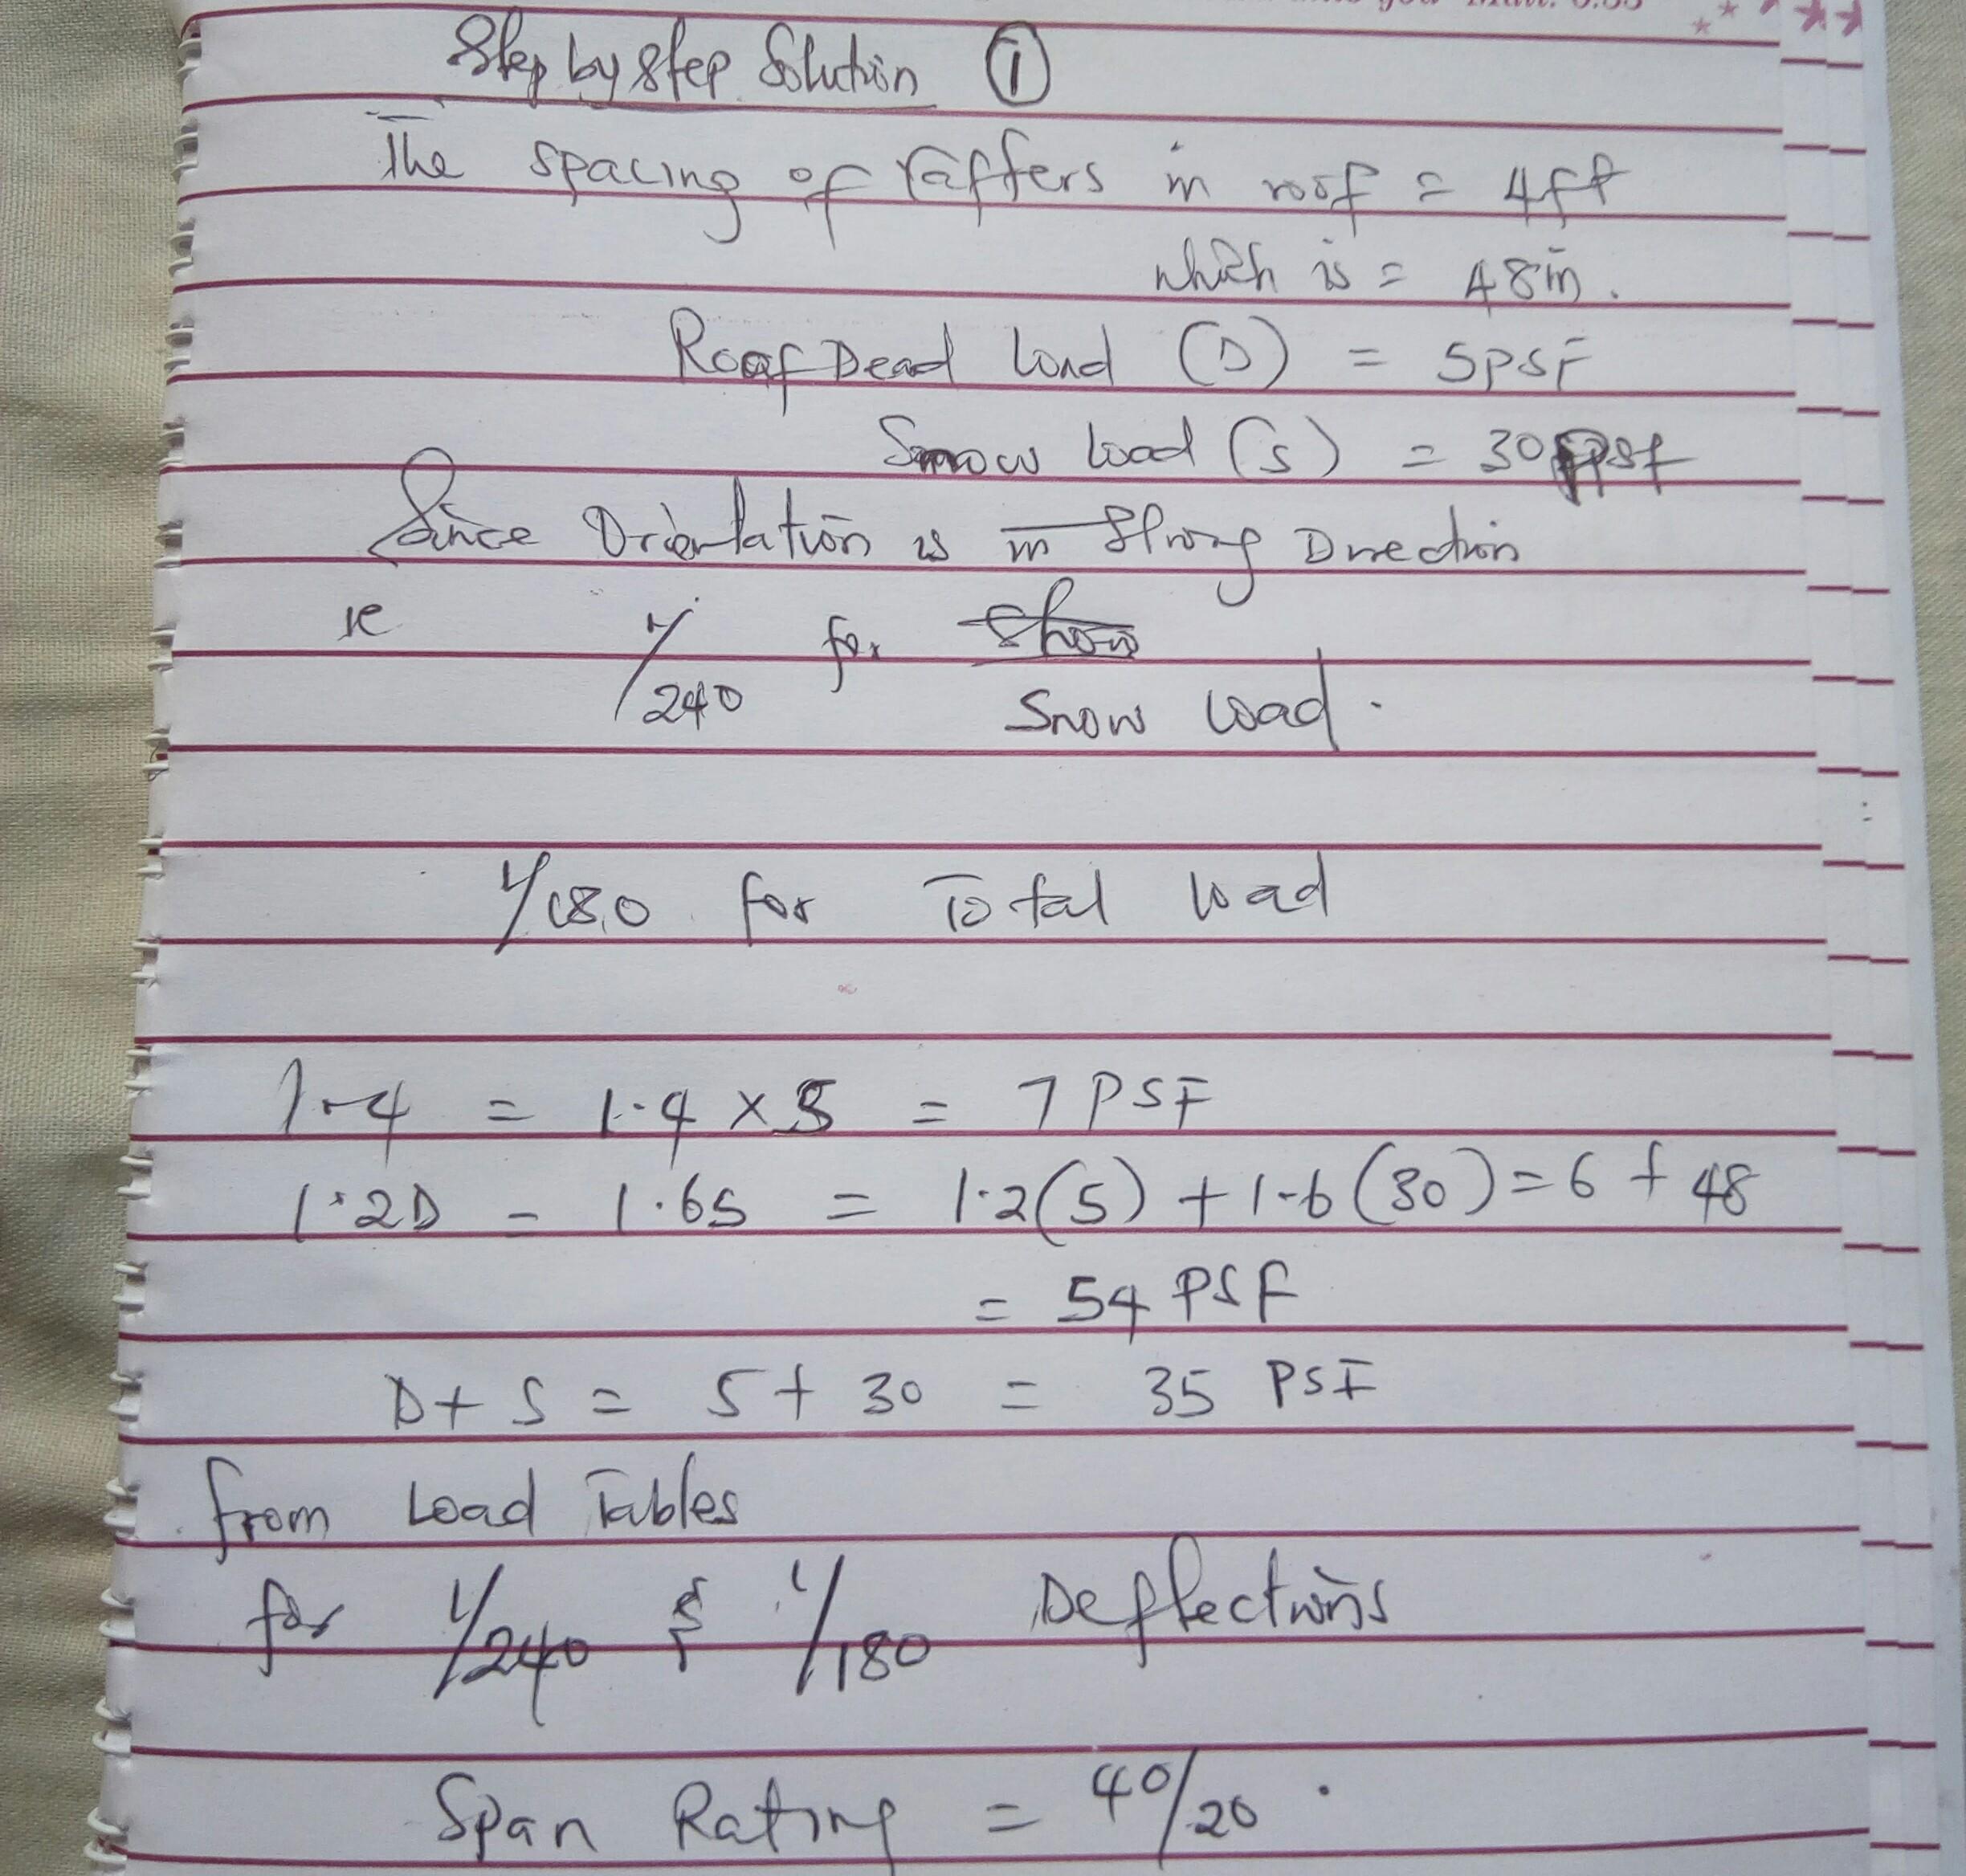 Step by step Solution ①
The spacing of rafters in roof = 4ft
which is = 48in.
Roof Dead Load (D) = 5PSF
Snow load (s) = 30 psf
Since Orientation is in Strong Direction
ie 1/240 for
Snow Load.
1/180 for Total load
1.4 = 1.4 x 5 = 7 PSF
1.2D - 1.6S = 1.2(5) + 1.6(30) = 6 + 48
= 54 PSF
D + S = 5 + 30 = 35 PSF
from Load Tables
for 1/240 & 1/180 Deflections
Span Rating = 40/20.